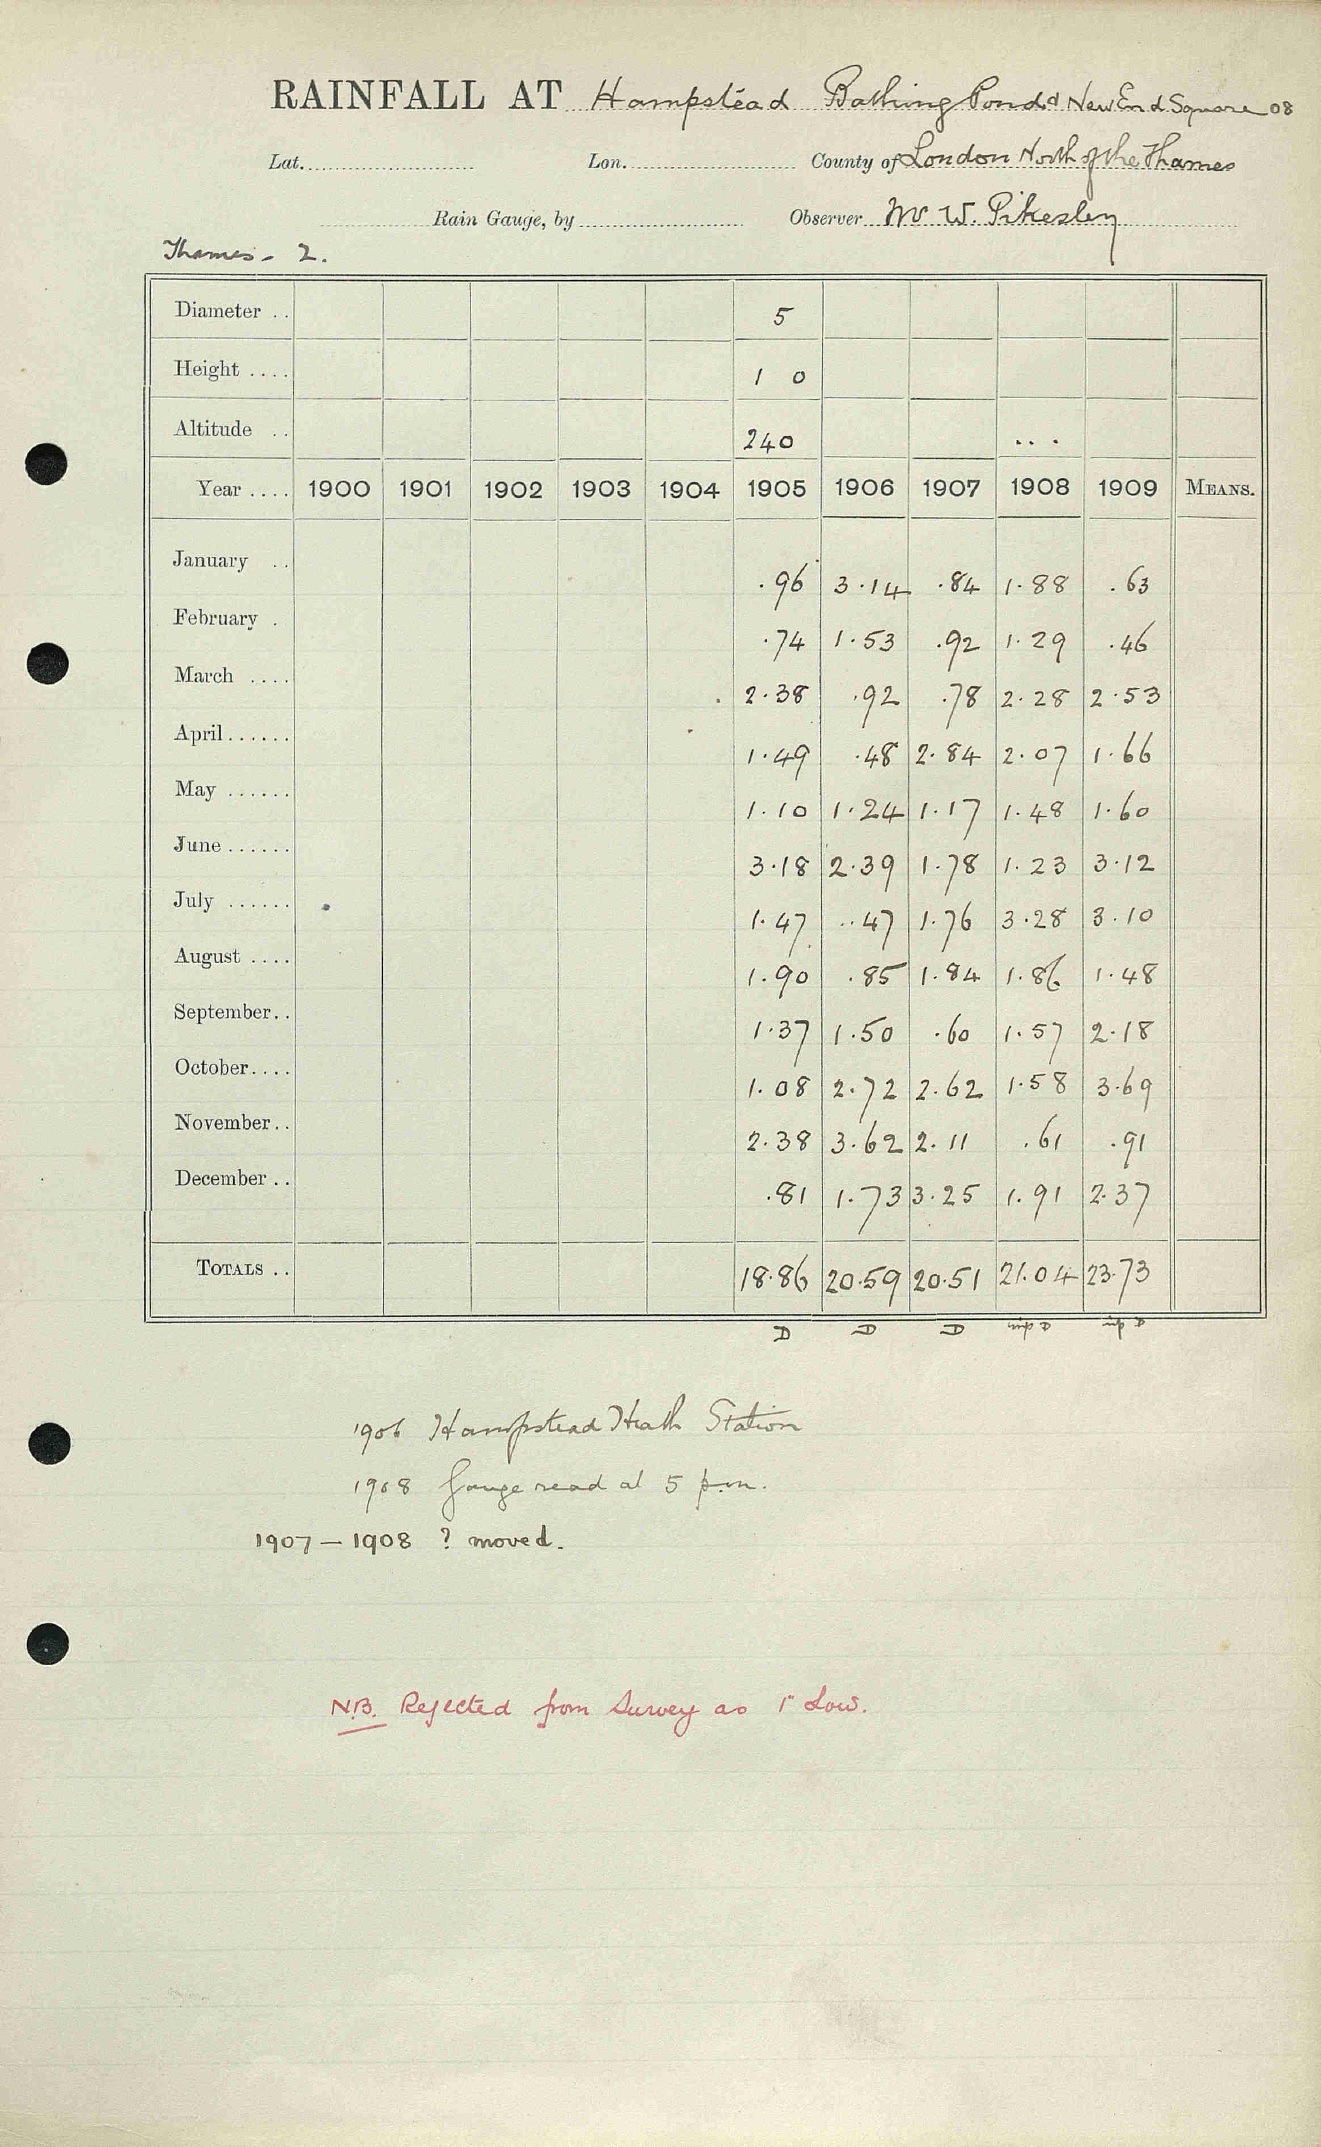 RAINFALL AT Hampstead Bathing Pond & New End Square 08
Lat. Lon. County of London North of the Thames
Rain Gauge, by Observer Mr W. Pikesley
Thames - 2.
Diameter .. 5
Height .... 1 0
Altitude .. 240 ...
Year .... 1900 1901 1902 1903 1904 1905 1906 1907 1908 1909 MEANS.
January .. .96 3.14 .84 1.88 .63
February . .74 1.53 .92 1.29 .46
March .... 2.38 .92 .78 2.28 2.53
April...... 1.49 .48 2.84 2.07 1.66
May ...... 1.10 1.24 1.17 1.48 1.60
June ...... 3.18 2.39 1.78 1.23 3.12
July ...... 1.47 .47 1.76 3.28 3.10
August .... 1.90 .85 1.84 1.86 1.48
September.. 1.37 1.50 .60 1.57 2.18
October.... 1.08 2.72 2.62 1.58 3.69
November.. 2.38 3.62 2.11 .61 .91
December .. .81 1.73 3.25 1.91 2.37
TOTALS .. 18.86 20.59 20.51 21.04 23.73
D D D D D
1906 Hampstead Heath Station
1908 Gauge read at 5 p.m.
1907 — 1908 ? moved.
N.B. Rejected from Survey as 1" Low.